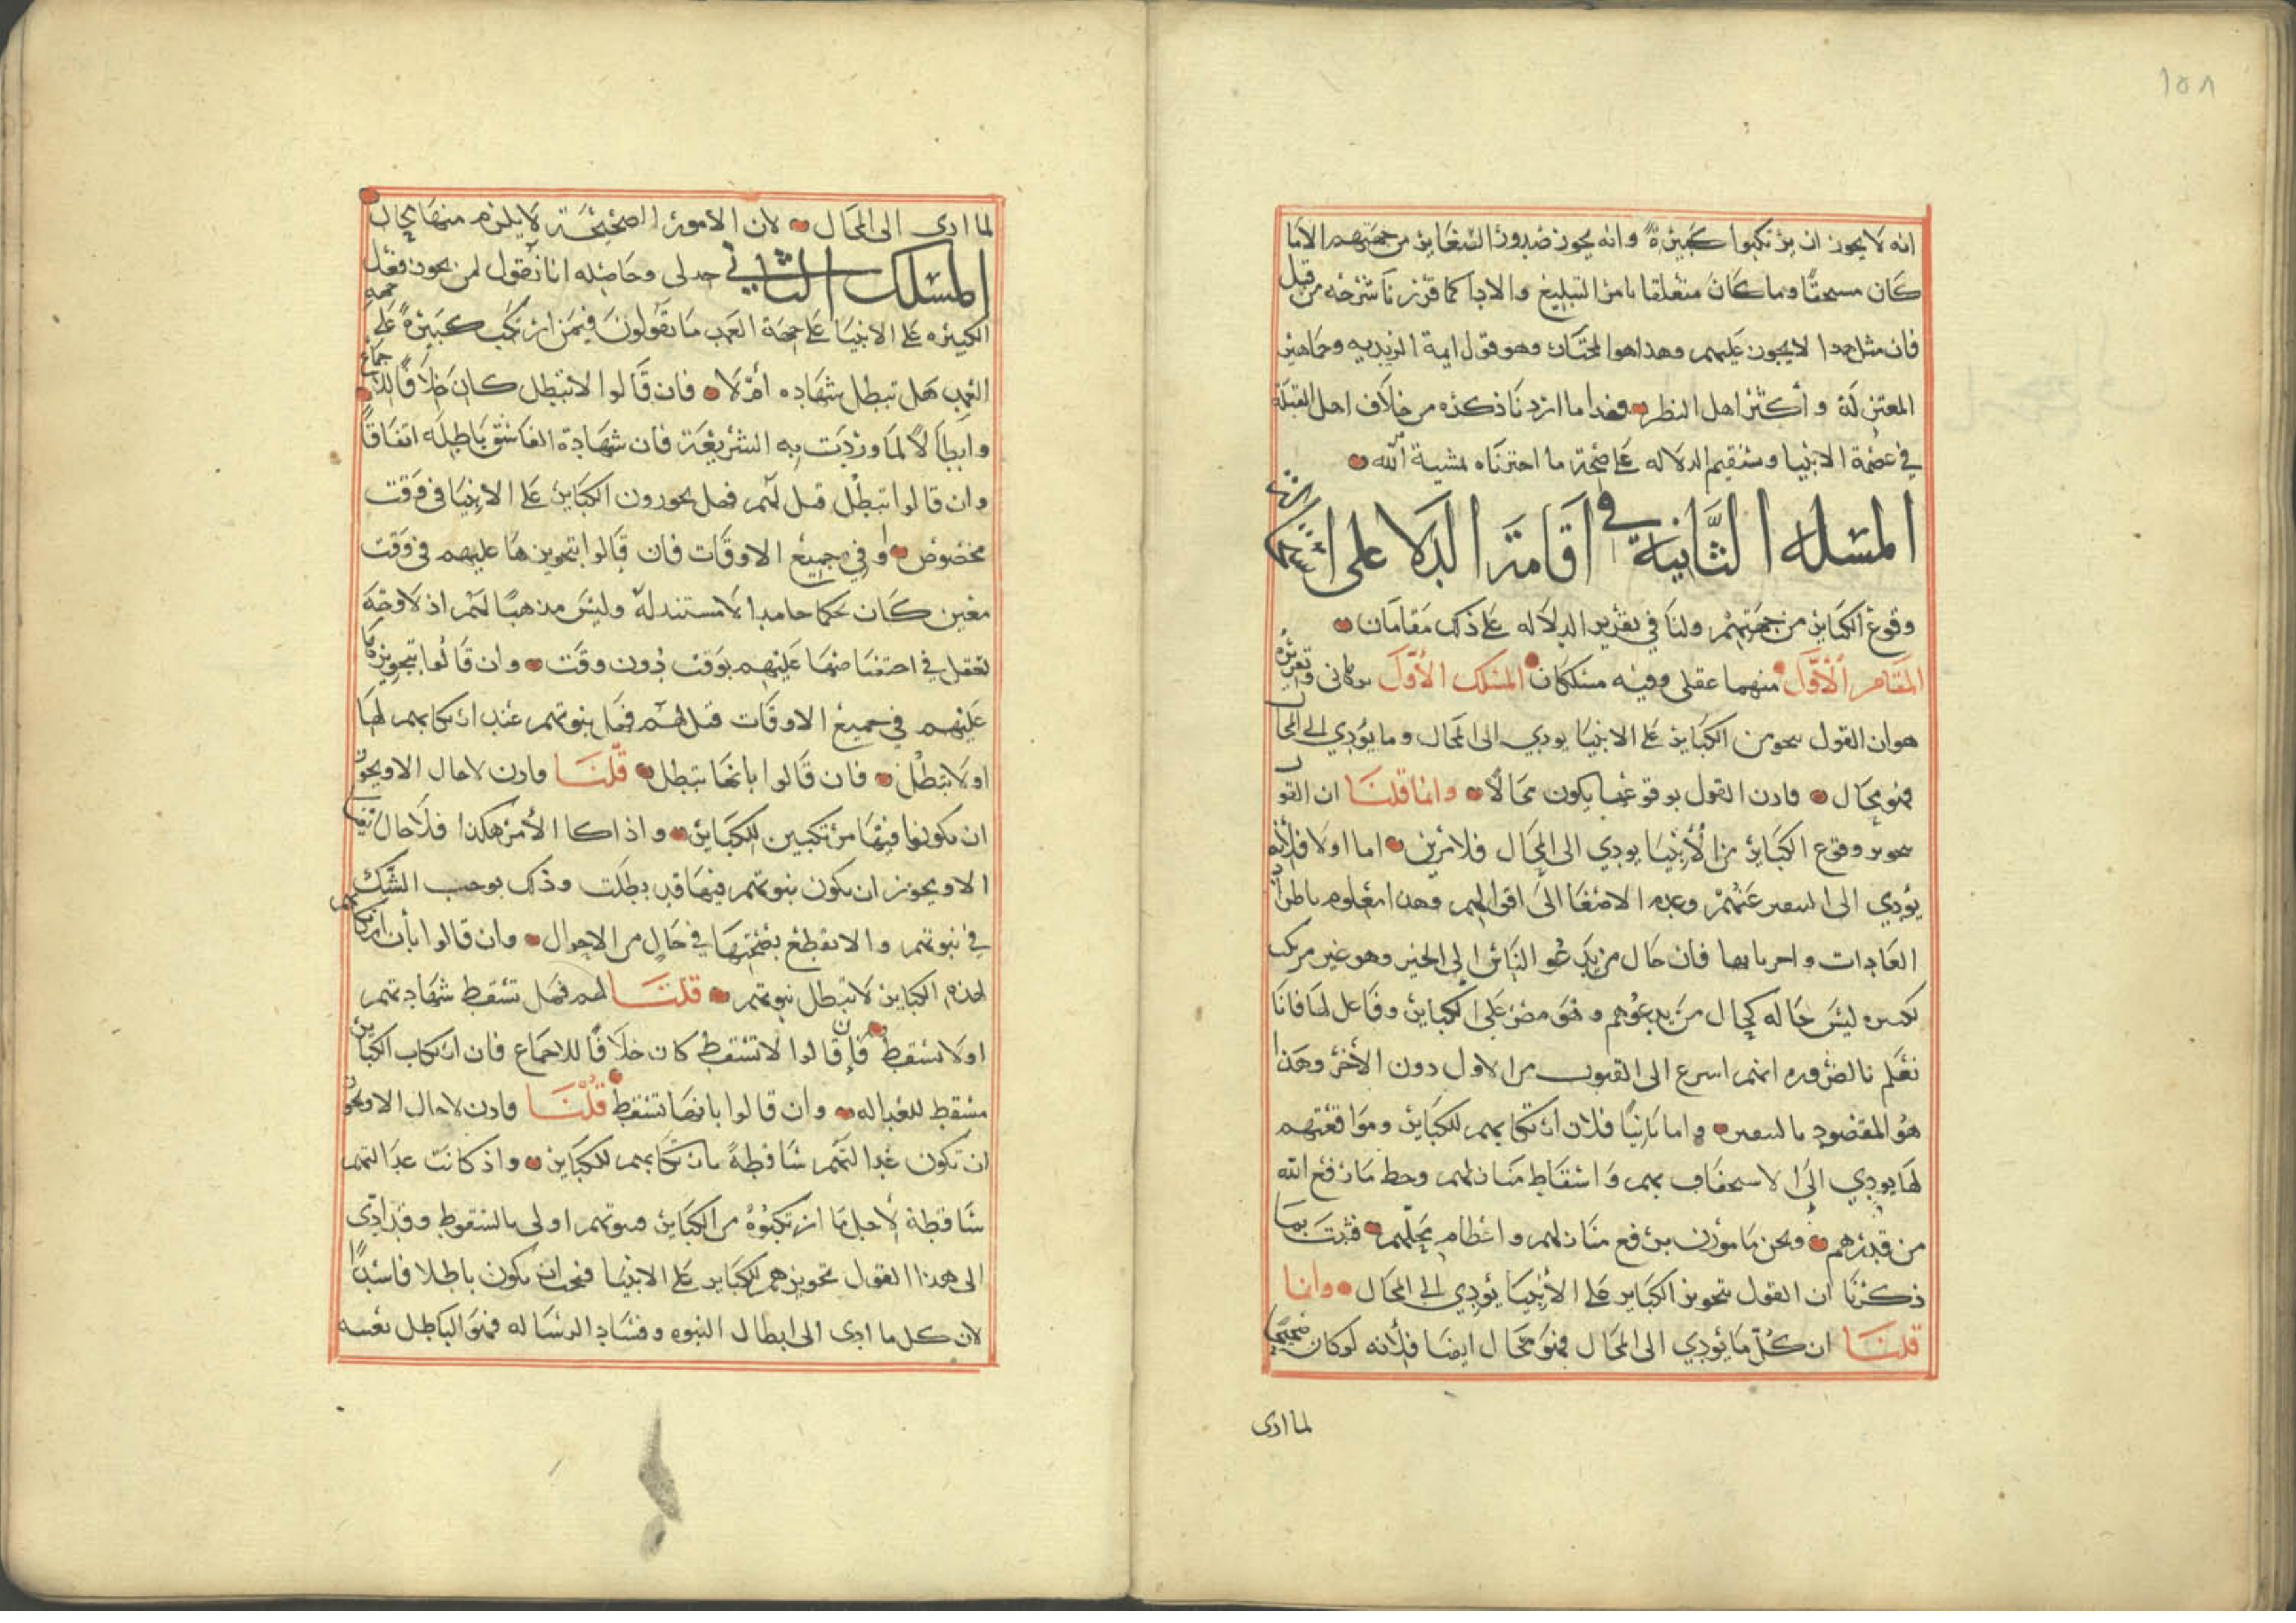 ١٥٨
انه لا يجوز ان يرتكبوا كبيرة وانه يجوز صدور الصغاير من جهتهم الا ما
كان مسخفا وما كان متعلقا بامر التبليغ والادا كما قررنا شرحه من قبل
فان مثل هدا لا يجوز عليهم وهذا هو المختار وهو قول ايمة الزيديه وجماهير
المعتزلة و أكثر اهل النظر فهدا ما اردنا ذكره من خلاف اهل القبلة
في عصمة الانبيا وسنقيم الدلاله على صحة ما اخترناه بمشية الله
المسله الثانية في اقامة الدلا على استحالة
وقوع الكباير من جهتهم ولنا في تقرير الدلاله على ذلك مقامان
المقام الأول منهما عقلي وفيه مسلكان المسلك الأول برهاني وتقريره
هو ان القول بتجويز الكباير على الانبيا يودي الى المحال وما يؤدي الى المحال
فهو محال فادن القول بوقوعها يكون محالا وانما قلنا ان القول
بتجويز وقوع الكباير من الأنبيا يودي الى المحال فلامرين اما اولا فلأنه
يؤدي الى التنفير عنهم وعدم الاصغا الى اقوالهم وهدا معلوم باطراد
العادات واجرايها فان حال من يدعو الناس الى الخير وهو غير مرتكب
لكبيره ليس حاله كحال من يدعوهم وهو مصر على الكباير وفاعل لها فانا
نعلم بالضروره انهم اسرع الى القبول من الاول دون الأخر وهذا
هو المقصود بالتنفير واما ثانيا فلان ارتكابهم للكباير ومواقعتهم
لها يودي الى الاستخفاف بهم واسقاط منازلهم وحط ما رفع الله
من قدرهم ونحن مامورن برفع منازلهم واعظام محلهم فثبت بما
ذكرنا ان القول بتجويز الكباير على الأنبيا يؤدي الى المحال وانما
قلنا ان كل ما يؤدي الى المحال فهو محال ايضا فلأنه لو كان صحيحا
لما ادى
لما ادى الى المحال لان الامور الصحيحة لا يلزم منها محال
المسلك الثاني جدلي وحاصله انا نقول لمن يجوز فعل
الكبيره على الانبيا على جهة العمد ما تقولون فيمن ارتكب كبيرة على جهه
العمد هل تبطل شهاده أم لا فان قالوا لا تبطل كان خلافا للاجماع
وابطالا لما وردت به الشريعة فان شهادة الفاسق باطله اتفاقا
وان قالوا تبطل قيل لهم فهل تجوزون الكباير على الانبيا في وقت
مخصوص او في جميع الاوقات فان قالوا بتجويزها عليهم في وقت
معين كان تحكما جامدا لا مستند له وليس مدهبا لهم اذ لا وجه
تعقل في اختصاصها عليهم بوقت دون وقت وان قالوا بتجويزها
عليهم في جميع الاوقات قيل لهم فهل نبوتهم عند ارتكابهم لها
او لا تبطل فان قالوا بانها تبطل قلنا فادن لا حال الا ويجوز
ان يكونوا فيها مرتكبين للكباير واذا كا الأمر هكذا فلا حال ايضا
الا ويجوز ان يكون نبوتهم فيها قد بطلت وذلك يوجب الشك
في نبوتهم والا نقطع بصحتها في حال من الاحوال وان قالوا بأن ارتكابهم
لهذه الكباير لا تبطل نبوتهم قلنا لهم فهل تسقط شهادتهم
او لا تسقط فان قالوا لا تسقط كان خلافا للاجماع فان ارتكاب الكباير
مسقط للعداله وان قالوا بانها تسقط قلنا فادن لا حال الا ويجوز
ان تكون عدالتهم ساقطة بارتكابهم للكباير واذ كانت عدالتهم
ساقطة لأجل ما ارتكبوه من الكباير فنبوتهم اولى بالسقوط وقد ادى
الى هدا القول بتجويزهم للكباير على الانبيا فيجب ان يكون باطلا فاسدا
لان كل ما ادى الى ابطال النبوه وفساد الرساله فهو الباطل بعينه